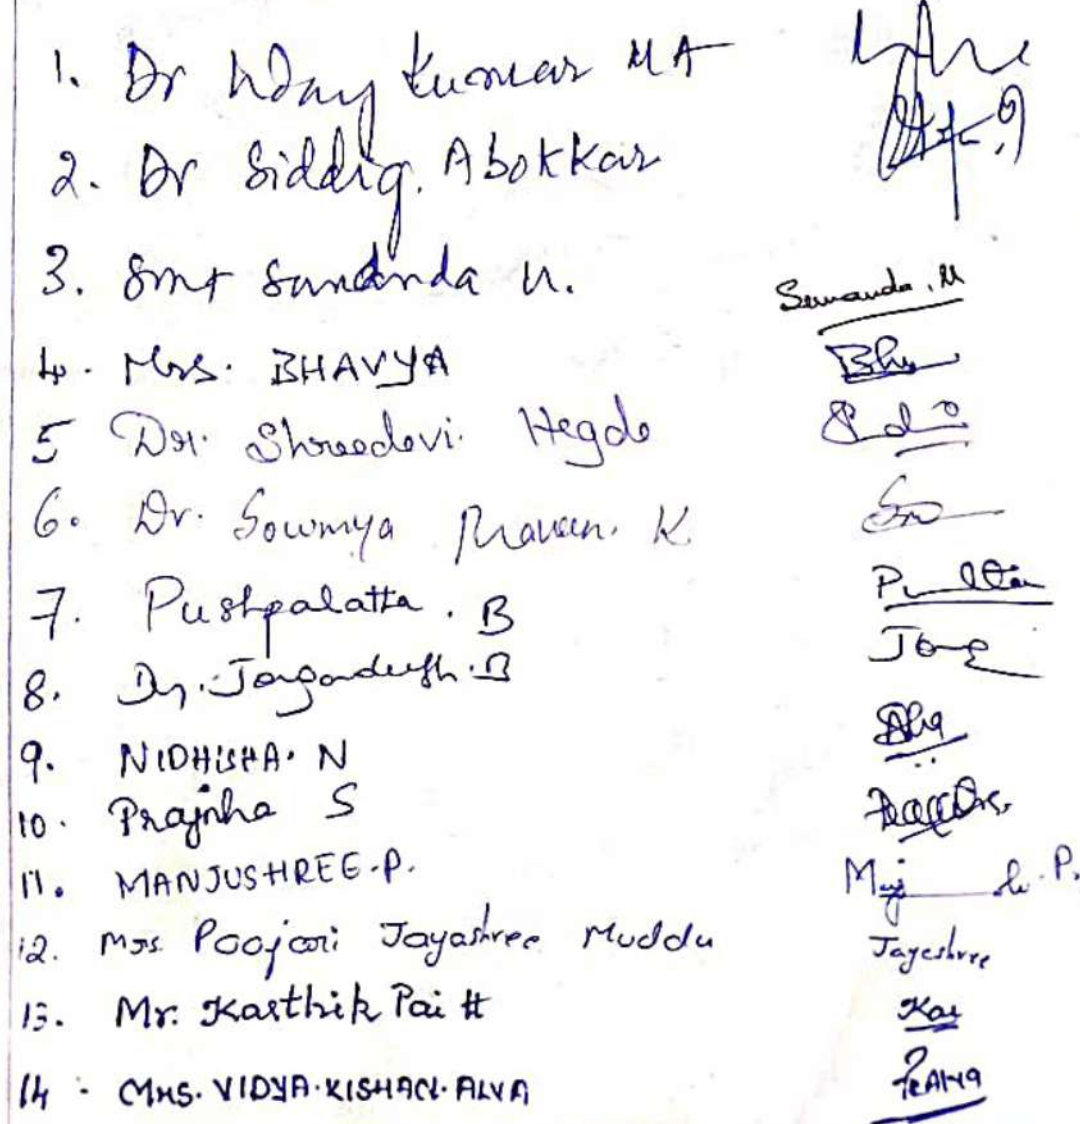 1. Dr Uday Kumar M A
2. Dr Siddiq. Abokkar
3. Smt Sunanda U. Sunanda. U
4. Mrs. BHAVYA Bhy
5 Dr. Shreedevi. Hegde
6. Dr. Sowmya Praveen. K
7. Pushpalatta. B
8. Dr. Jagadeesh. B
9. NIDHISHA. N
10. Prajnha S
11. MANJUSHREE.P.
12. Mrs. Poojari Jayashree Muddu Jayeshree
13. Mr. Karthik Pai H Kar
14. Mrs. VIDYA.KISHAN.ALVA